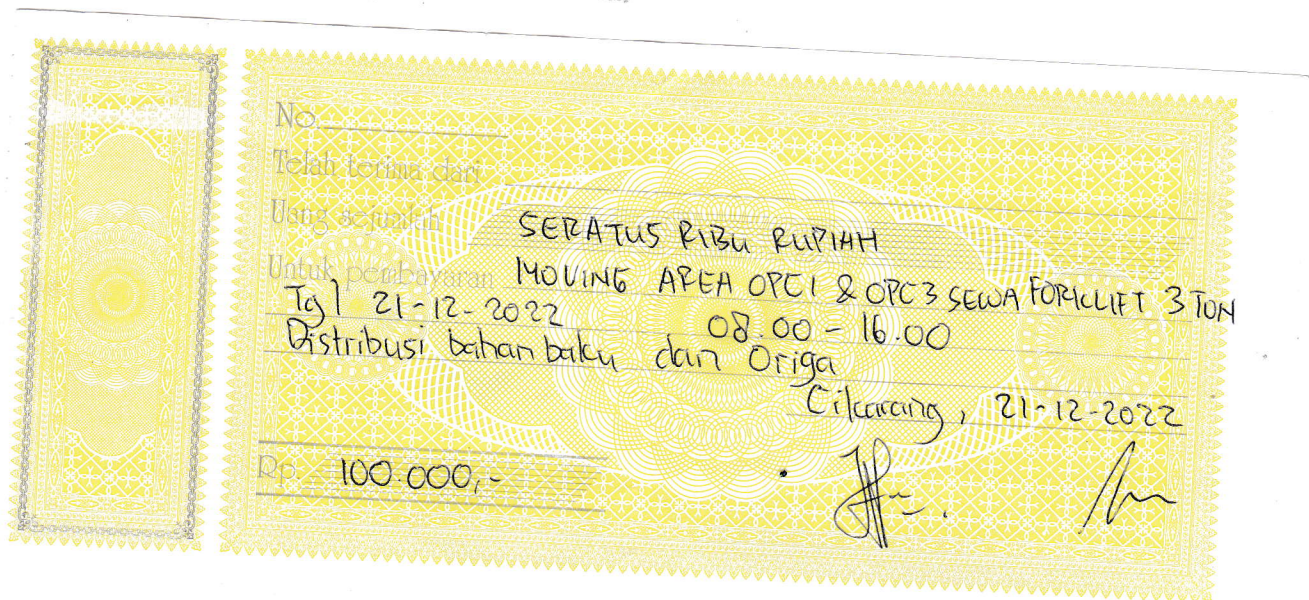 No.
Telah terima dari
Uang sejumlah SERATUS RIBU RUPIAH
Untuk pembayaran MOVING AREA OPC1 & OPC3 SEWA FORKLIFT 3 TON
Tgl 21-12-2022 08.00 - 16.00
Distribusi bahan baku dan Origa
Cikarang, 21-12-2022
Rp. 100.000,-